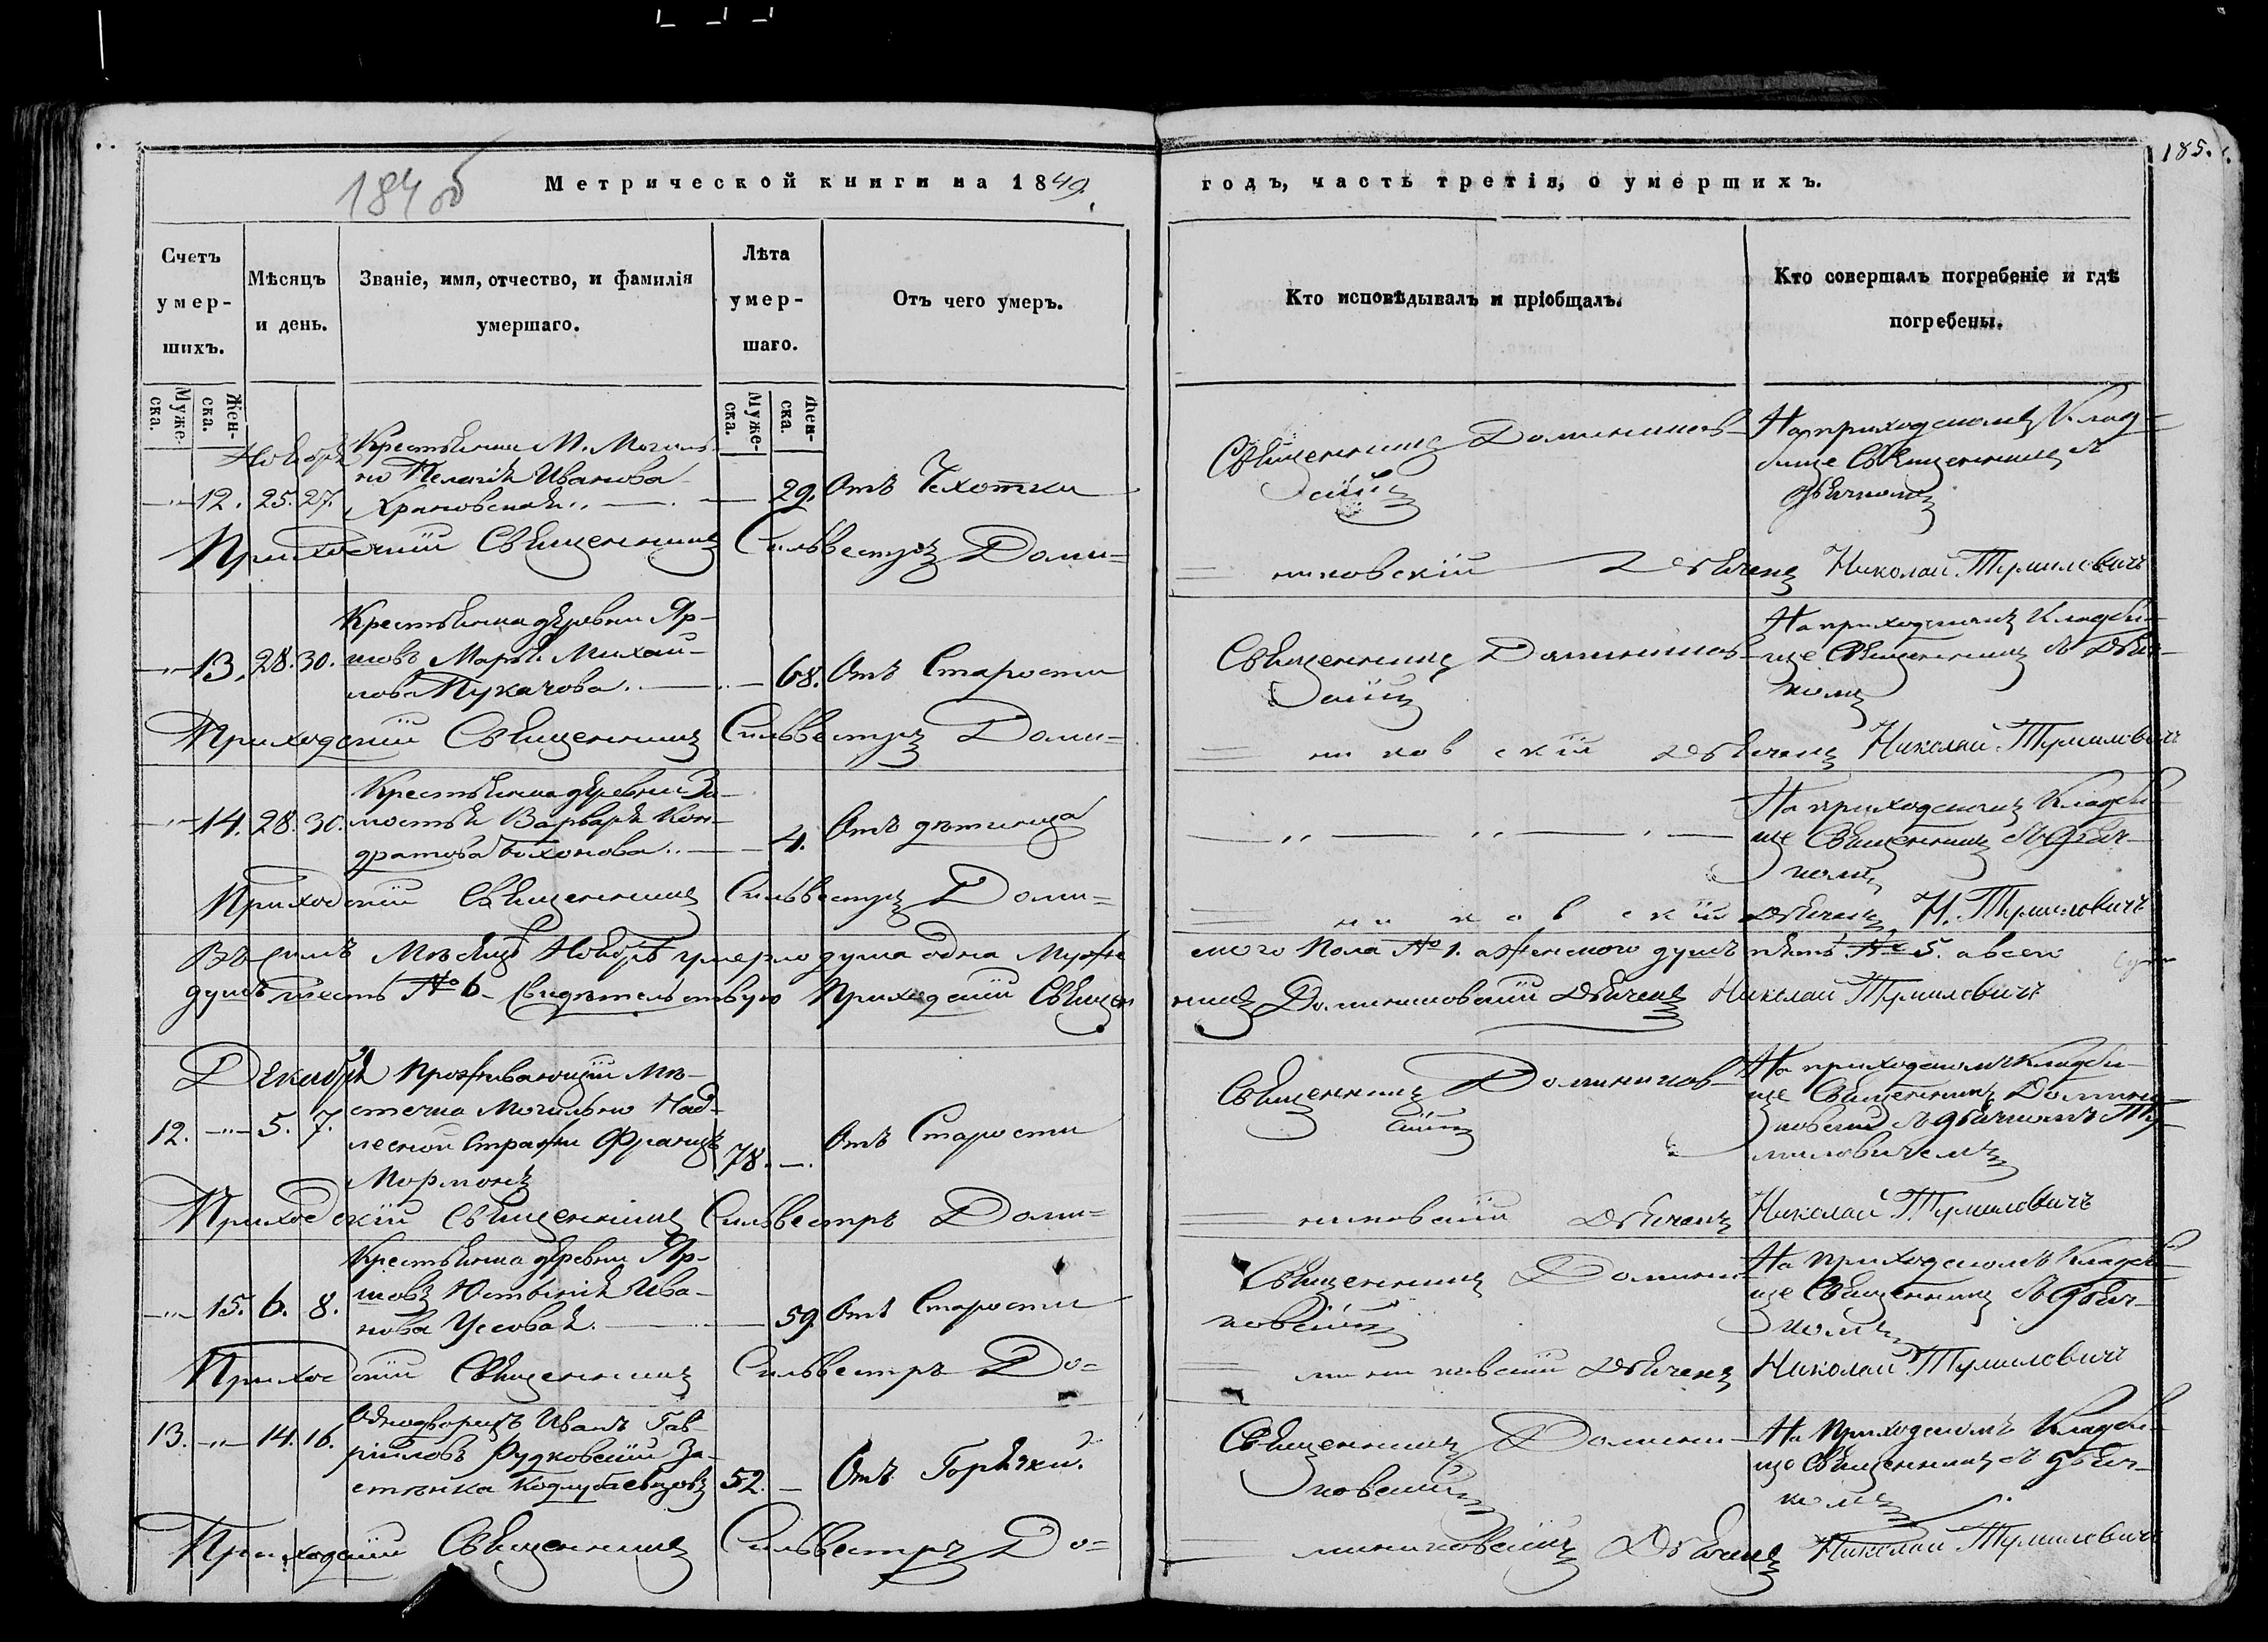 184 об
185.
Метрической книги на 1849.
годъ, часть третія, о умершихъ.
Счетъ умер-
шихъ.
Мѣсяцъ
и день.
Званіе, имя, отчество, и фамилія
умершаго.
Лѣта
умер-
шаго.
Отъ чего умеръ.
Кто исповѣдывалъ и пріобщалъ.
Кто совершалъ погребеніе и гдѣ
погребены.
Муже-
ска.
Жен-
ска.
Муже-
ска.
Жен-
ска.
Ноября
Крестьянка М. Могиль-
но Пелагія Иванова
12. 25. 27. Крановская 29. Отъ Чехотки
Священникъ Домиников-
скій
На приходскомъ Клад-
бище Священникъ съ
дьячкомъ
Приходскій Священникъ Сильвестръ Доми=
= никовскій Дьячекъ Николай Тумиловичъ
Крестьянка деревни Яр-
13. 28. 30. шовъ Марья Михай-
лова Пукачова. 68. Отъ Старости
Священникъ Домиников-
скій
На приходскомъ Кладби-
ще Священникъ съ Дьяч-
комъ
Приходскій Священникъ Сильвестръ Доми=
= никовскій Дьячекъ Николай Тумиловичъ
Крестьянка деревни За-
14. 28. 30. мостья Варвара Кон-
дратова Бохонова 4. Отъ дѣтинца
На приходскомъ Кладби-
ще Священникъ съ Дьяч-
комъ
Приходскій Священникъ Сильвестръ Доми=
= никовскій Дьячекъ Н. Тумиловичъ
Въ семъ Мѣсяцѣ Ноябрѣ умерло душа одна Муже
ского Пола № 1. а женского душъ пять № 5. а всего
душъ шесть № 6 Свидѣтельствую Приходскій Священ
никъ Доминиковскій Дьячекъ Николай Тумиловичъ
Декабря
Проживающій Мѣ-
стечка Могильно Над-
12. 5. 7. лесной Стражи Францъ
Мормонъ 78. Отъ Старости
Священникъ Домиников-
скій
На приходскомъ Кладби-
ще Священникъ Домини-
ковскій съ дьячкомъ Ту-
миловичемъ
Приходскій Священникъ Сильвестръ Доми=
= никовскій Дьячекъ Николай Тумиловичъ
Крестьянка деревни Яр-
15. 6. 8. шовъ Юстинія Ива-
нова Усовая. 59. Отъ Старости
Священникъ Домини-
ковскій
На приходскомъ Кладби-
ще Священникъ съ Дьяч-
комъ
Приходскій Священникъ Сильвестръ До=
= миниковскій Дьячекъ Николай Тумиловичъ
13. 14. 16. Однодворецъ Иванъ Гав-
ріиловъ Рудковскій За-
стѣнка 52. Отъ Горячки.
Священникъ Домини-
ковскій
На Приходскомъ Кладби-
ще Священникъ съ дьяч-
комъ
Приходскій Священникъ Сильвестръ До=
= миниковскій Дьячекъ Николай Тумиловичъ